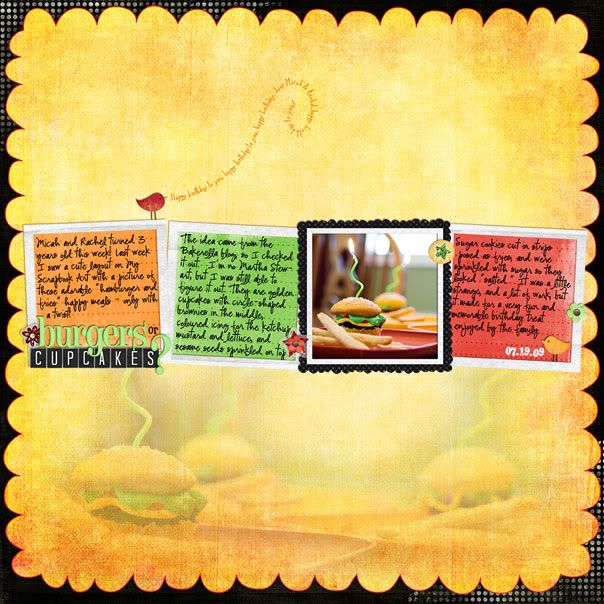 Happy birthday to you, happy birthday to you, happy birthday dear Micah & Rachel, happy birthday to you!
Micah and Rachel turned 3
years old this week! Last week
I saw a cute layout on My
Scrapbook Art with a picture of
these adorable "hamburger and
fries" happy meals - only with
a twist!
burgers or
CUPCAKES?
The idea came from the
Bakerella blog, so I checked
it out. I'm no Martha Stew-
art, but I was still able to
figure it out. They are golden
cupcakes with circle-shaped
brownies in the middle,
coloured icing for the ketchup,
mustard and lettuce, and
sesame seeds sprinkled on top.
Sugar cookies cut in strips
posed as fries, and were
sprinkled with sugar so they
looked salted. It was a little
strange, and a lot of work, but
it made for a very fun and
memorable birthday treat
enjoyed by the family.
07.19.09